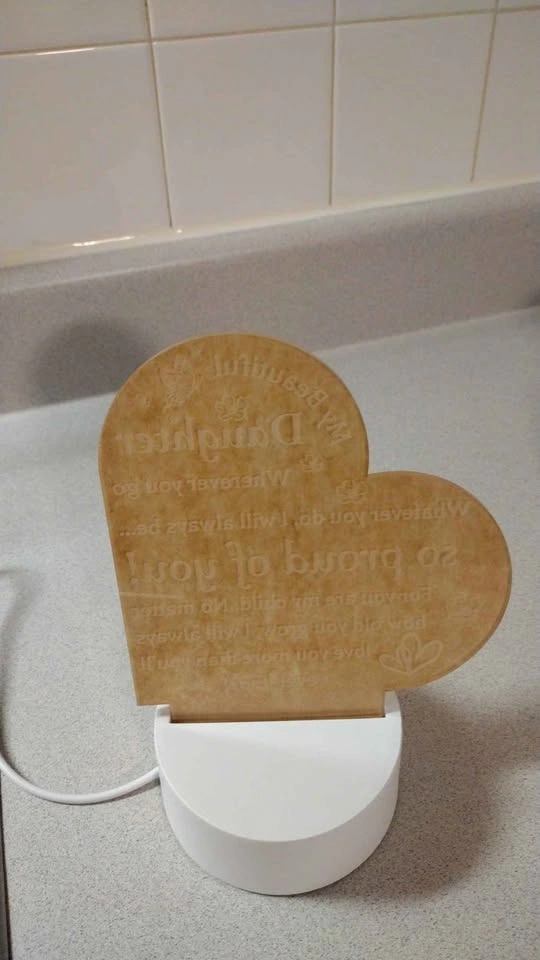 My Beautiful
Daughter
Wherever you go
Whatever you do, I will always be...
so proud of you!
For you are my child. No matter
how old you grow, I will always
love you more than you'll